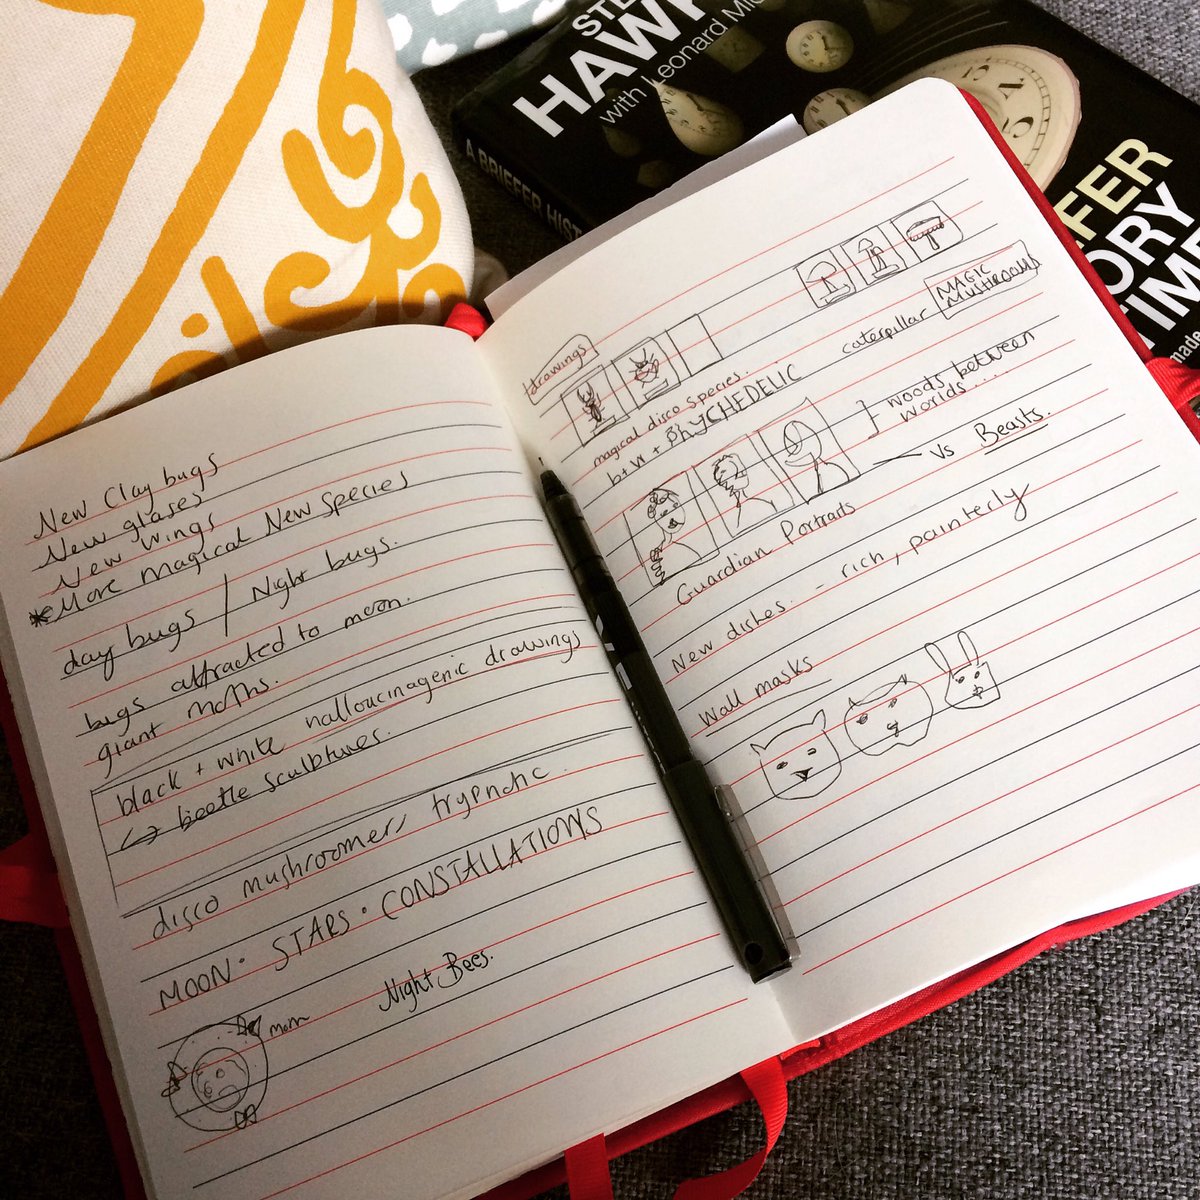 New Clay bugs
New glases
New wings
*More magical New Species
day bugs / Night bugs.
bugs attracted to moon.
giant moths.
black + white halloucinagenic drawings
↳ beetle sculptures.
disco mushroomers trypnotic.
MOON · STARS · CONSTALLATIONS
Night Bees.
drawings
magical disco species.
b+w + PhYCHEDELIC
caterpillar
MAGIC
MUSHROOMS
woods between
worlds ....
Guardian Portraits
vs Beasts.
New dishes. - rich, painterly
Wall masks
STE
HAWK
with Leonard Mlo
A BRIEFER HIST
EFER
ORY
TIME
made